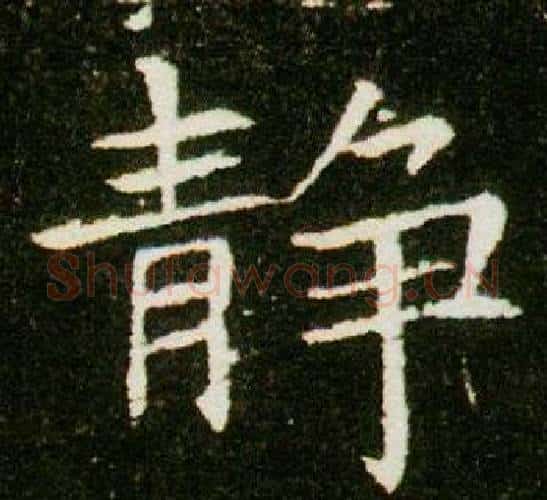 静
Shufawang.CN